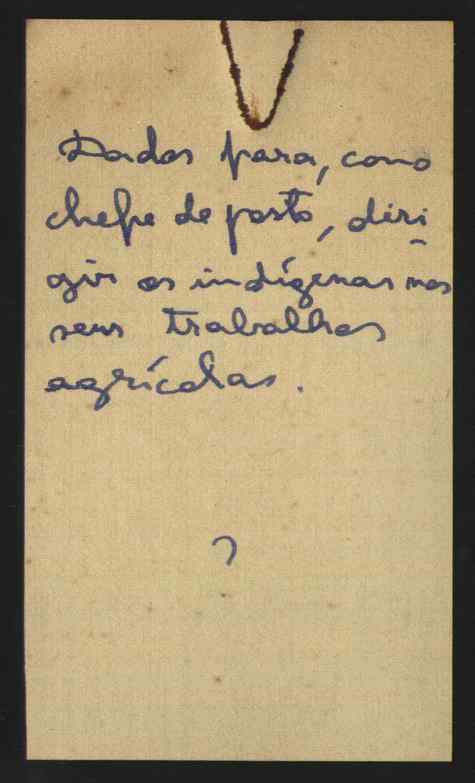 Dados para, como
chefe de posto, diri
gir os indígenas nos
seus trabalhos
agrícolas.
?